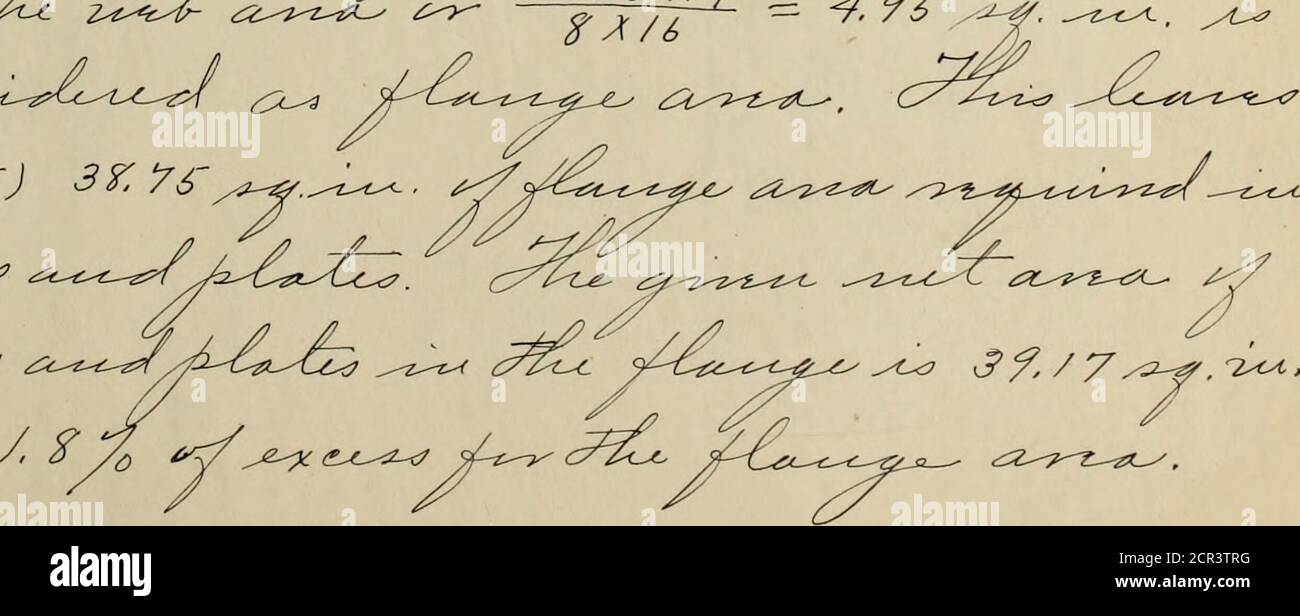 he web area or = 4.95 sq. in. is
8 X 16
idered as flange area. This leaves
) 38.75 sq. in. of flange area required in
s and plates. The given net area of
and plates in the flange is 39.17 sq. in.
1.8% of excess for the flange area.
alamy
Image ID: 2CR3TRG
www.alamy.com